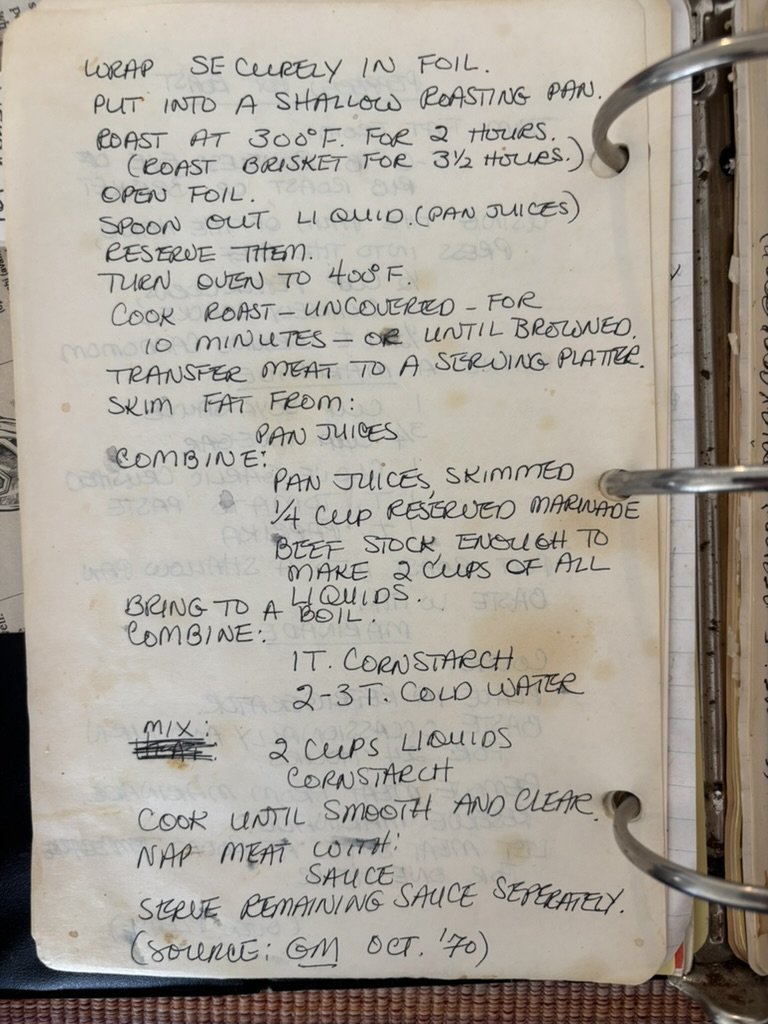 WRAP SECURELY IN FOIL.
PUT INTO A SHALLOW ROASTING PAN.
ROAST AT 300°F. FOR 2 HOURS.
(ROAST BRISKET FOR 3½ HOURS.)
OPEN FOIL.
SPOON OUT LIQUID. (PAN JUICES)
RESERVE THEM.
TURN OVEN TO 400°F.
COOK ROAST – UNCOVERED – FOR
10 MINUTES – OR UNTIL BROWNED.
TRANSFER MEAT TO A SERVING PLATTER.
SKIM FAT FROM:
PAN JUICES
COMBINE:
PAN JUICES, SKIMMED
¼ CUP RESERVED MARINADE
BEEF STOCK, ENOUGH TO
MAKE 2 CUPS OF ALL
LIQUIDS.
BRING TO A BOIL.
COMBINE:
1 T. CORNSTARCH
2-3 T. COLD WATER
MIX:
2 CUPS LIQUIDS
CORNSTARCH
COOK UNTIL SMOOTH AND CLEAR.
NAP MEAT WITH:
SAUCE
SERVE REMAINING SAUCE SEPERATELY.
(SOURCE: GM OCT. '70)